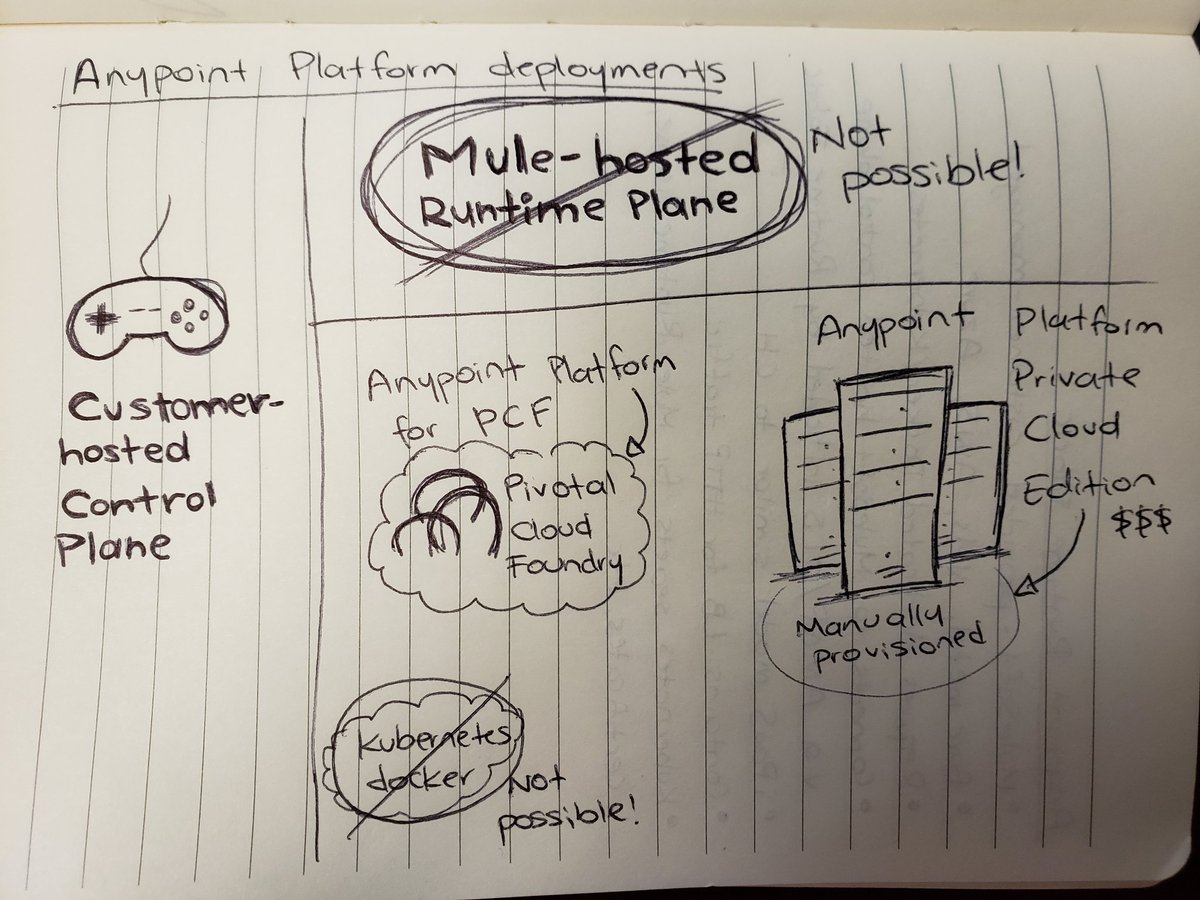 Anypoint Platform deployments
Mule-hosted
Runtime Plane
Not
possible!
Customer-
hosted
Control
Plane
Anypoint Platform
for PCF
Pivotal
Cloud
Foundry
Anypoint Platform
Private
Cloud
Edition
$$$
Manually
provisioned
Kubernetes
docker
Not
possible!